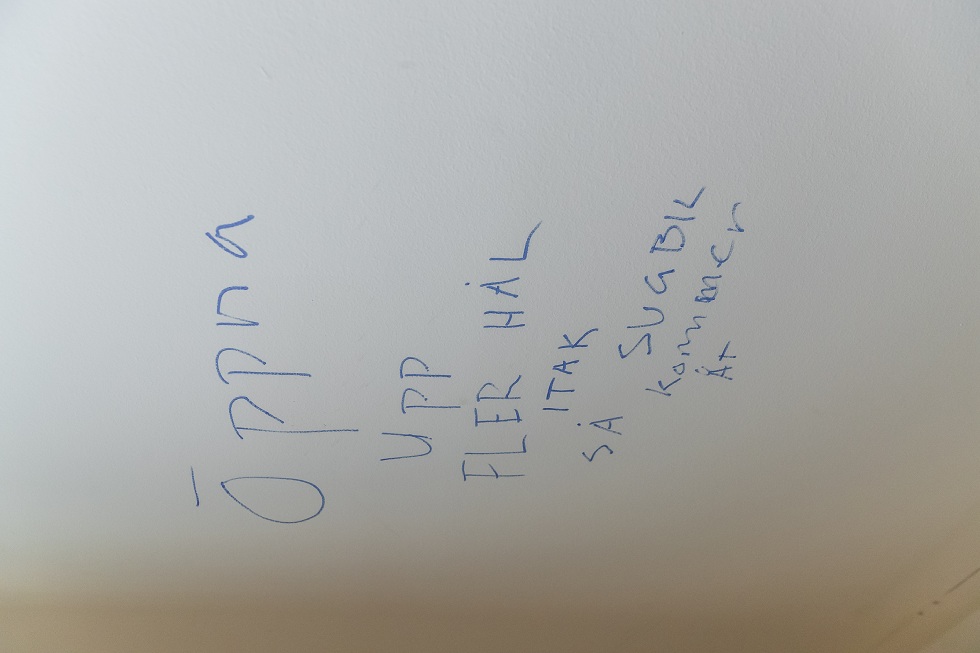 Öppna
UPP
FLER HÅL
I TAK
SÅ
SUGBIL
kommer
ÅT